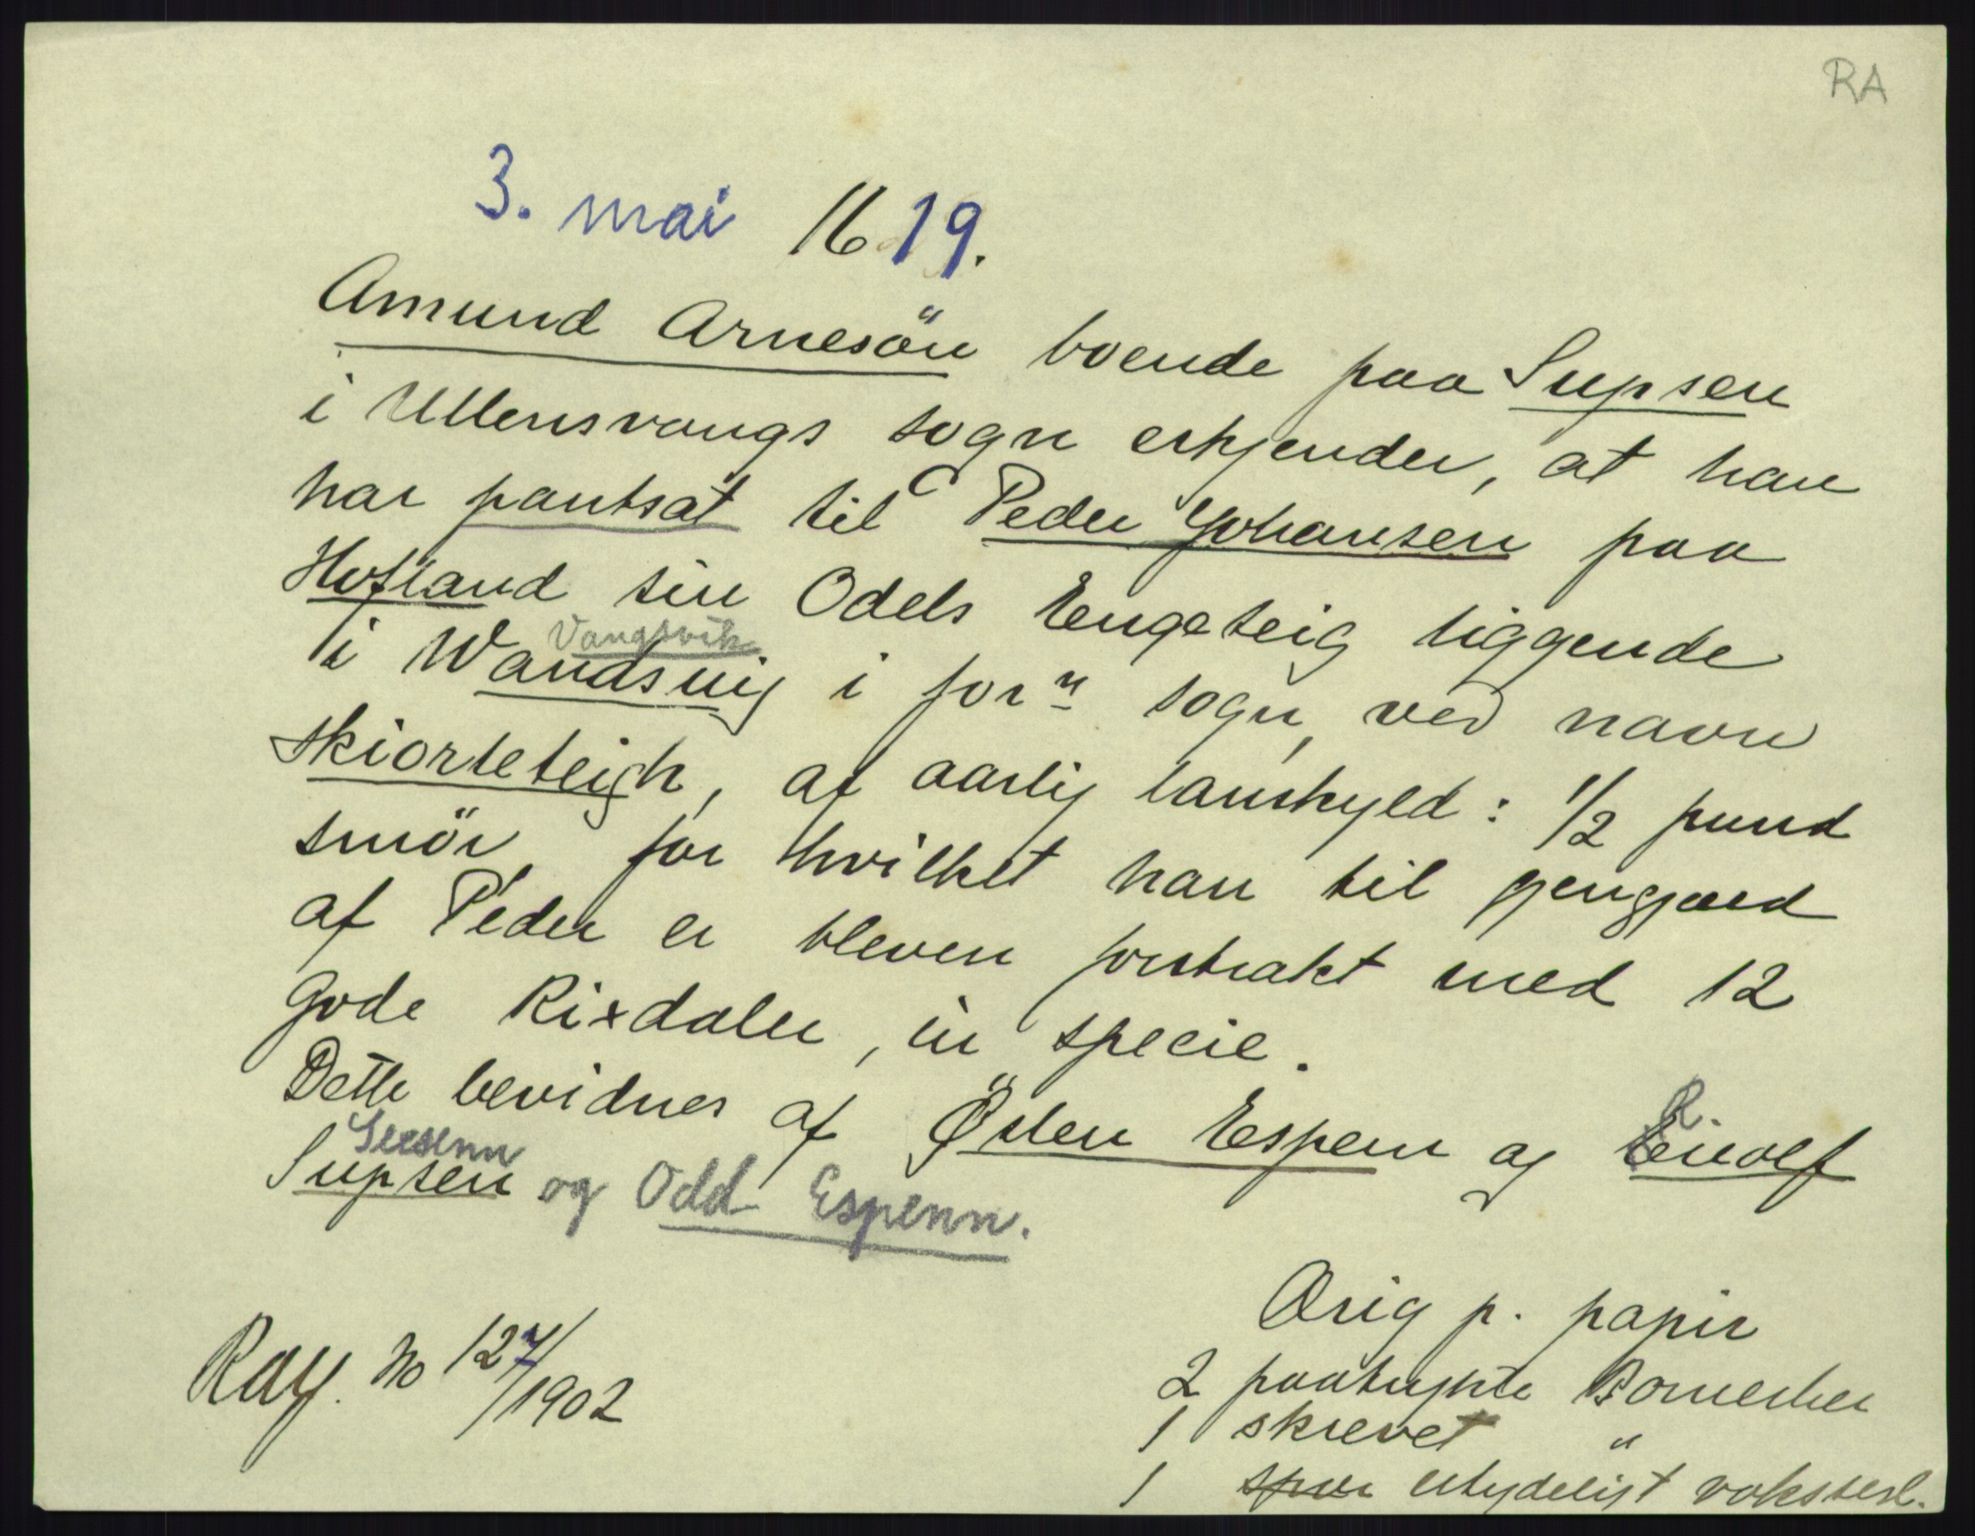 RA
3. mai 1619.
Amund Arnesön boende paa Supsen
i Ullensvangs sogn erkjender, at han
har pantsat til Peder Johansen paa
Hofland sin Odels Engeteig liggende
Vangsvik
i Wandsuig i forn sogn, ved navn
Skiorteteigh, af aarlig lanskyld: 1/2 pund
smör, for hvilket han til gjengjæld
af Peder er bleven forstrakt med 12
gode Rixdaler, in specie.
Dette bevidnes af Östen Espenn og Einolf
R
Seesenn
Supsen og Odd Espenn.
Orig p. papir
2 paatrykte Bomerker
1 skrevet "
1 spor utydeligt vokssegl.
No 127/1902